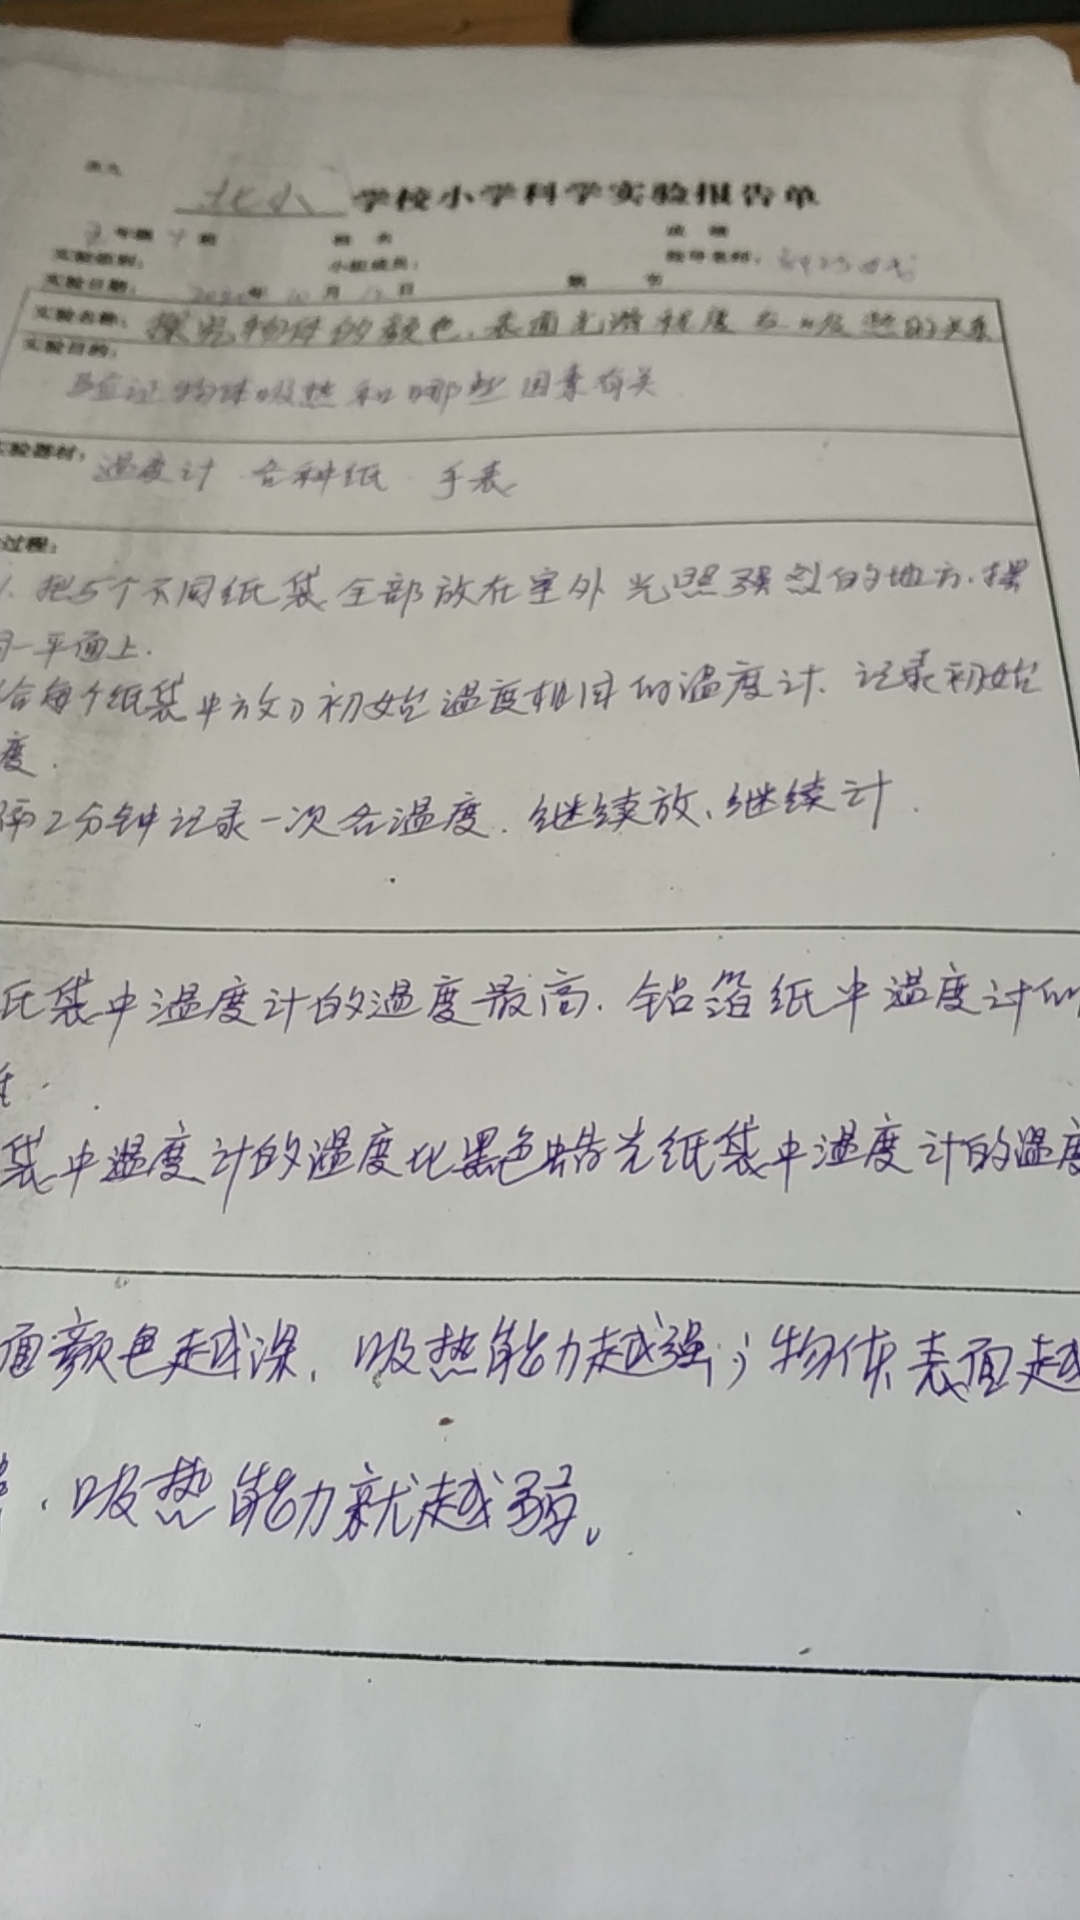 北小 学校小学科学实验报告单
年级 班 姓名 成绩
实验组别： 小组成员： 指导老师：
实验日期： 年 10 月 12 日 第 节
实验名称：探究物体的颜色、表面光滑程度与吸热的关系
实验目的：
验证物体吸热和哪些因素有关
实验器材：温度计 各种纸 手表
过程：
1. 把5个不同纸袋全部放在室外光照强烈的地方.摆
同一平面上.
给每个纸袋中放入初始温度相同的温度计. 记录初始
度.
隔2分钟记录一次各温度. 继续放、继续计.
纸袋中温度计的温度最高. 铝箔纸中温度计的
袋中温度计的温度比黑色蜡光纸袋中温度计的温度
面颜色越深, 吸热能力越强；物体表面越
. 吸热能力就越弱。